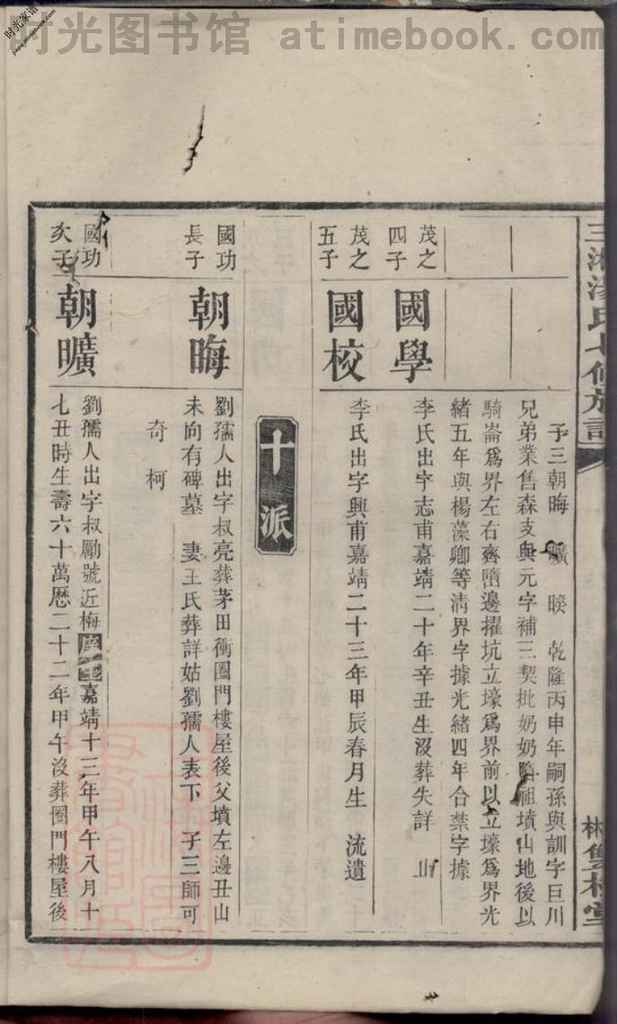 时光图书馆 atimebook.com
三湘湯氏七修族譜
彬雙桂堂
子三朝晦 曠 䁋 乾隆丙申年嗣孫與訓字巨川
兄弟業售森支與元字補三契批奶奶 祖墳山地後以
騎崙爲界左右齊 邊擢坑立壕爲界前以立壕爲界光
緒五年與楊藻卿等清界字據光緒四年合禁字據
茂之
四子
國學
李氏出字志甫嘉靖二十年辛丑生沒葬失詳
茂之
五子
國校
李氏出字興甫嘉靖二十三年甲辰春月生 流遺
十派
國功
長子
朝晦
劉孺人出字叔亮葬茅田衝圈門樓屋後父墳左邊丑山
未向有碑墓 妻王氏葬詳姑劉孺人表下 子三師可
奇柯
國功
次子
朝曠
劉孺人出字叔勵號近梅 嘉靖十三年甲午八月十
七丑時生壽六十萬歷二十二年甲午沒葬圈門樓屋後